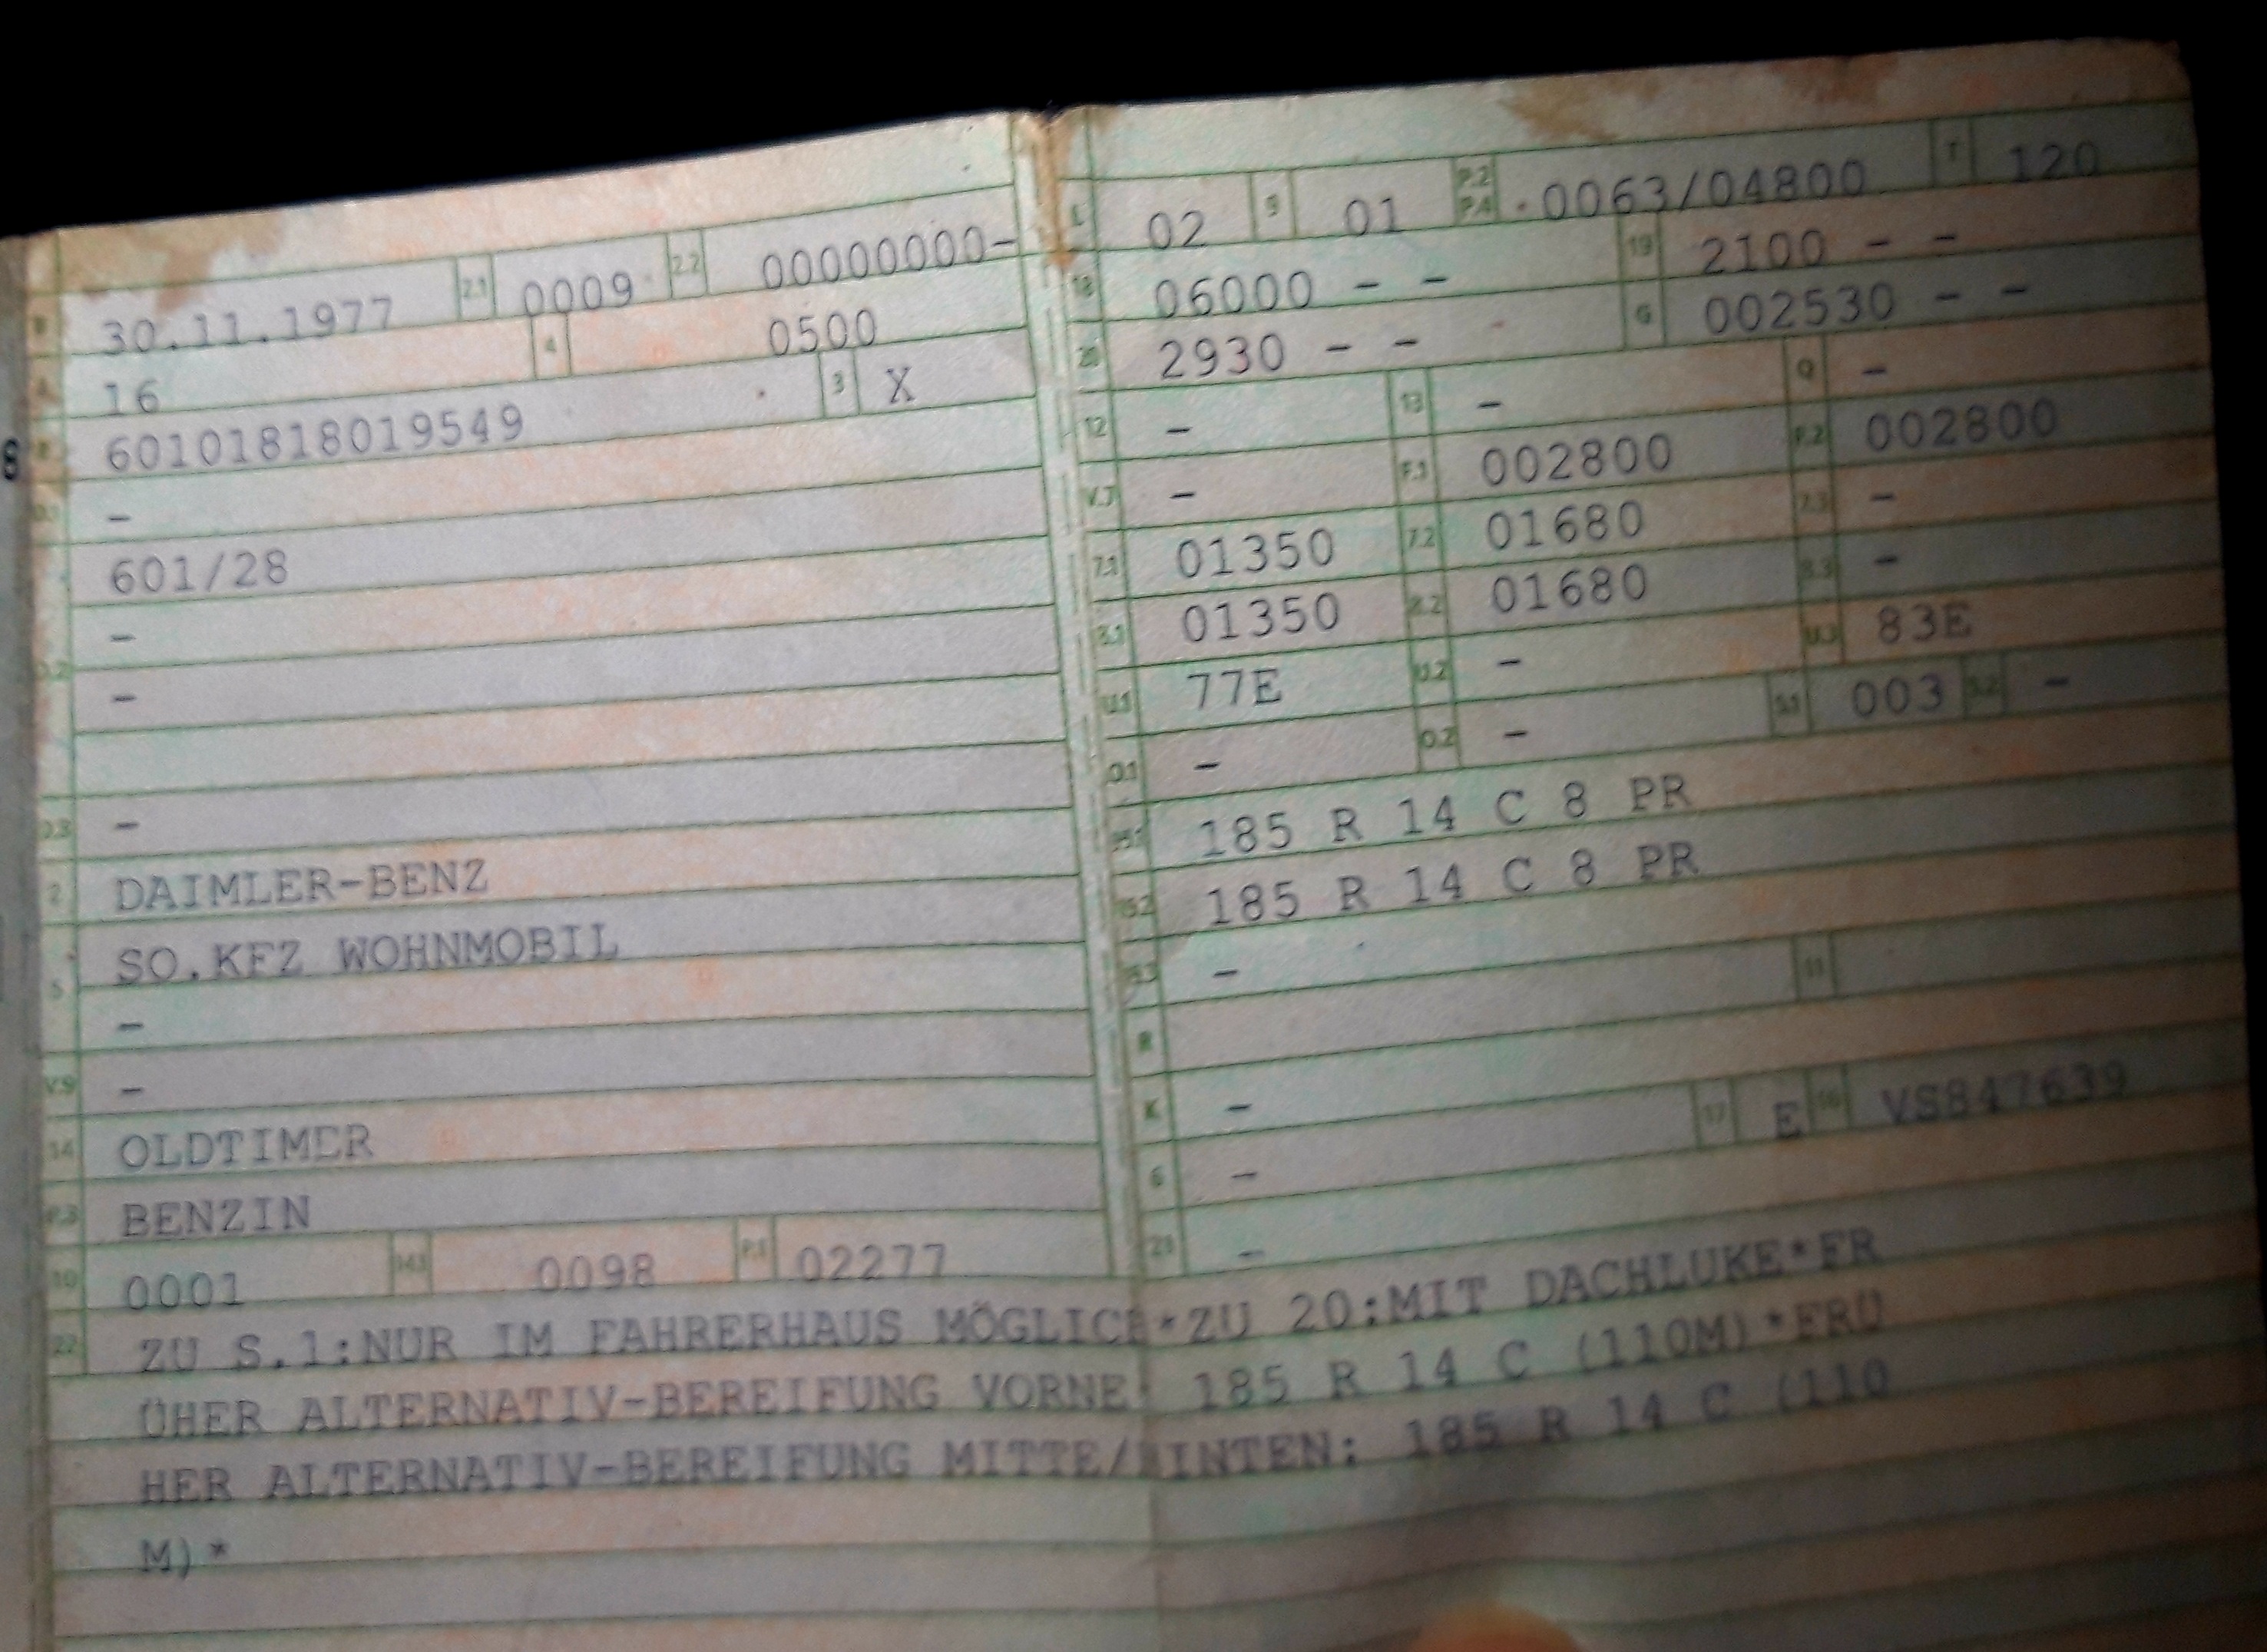 B 30.11.1977 2.1 0009 2.2 00000000-
16 4 0500
60101818019549 3 X
D.1 -
601/28
-
D.2 -
D.3 -
2 DAIMLER-BENZ
5 SO.KFZ WOHNMOBIL
-
V.9 -
14 OLDTIMER
P.3 BENZIN
10 0001 14.1 0098 P.1 02277
L 02 9 01 P.2 P.4 .0063/04800 T 120
18 06000 - - 19 2100 - -
20 2930 - - G 002530 - -
12 - 13 - Q -
V.7 - F.1 002800 F.2 002800
7.1 01350 7.2 01680 7.3 -
8.1 01350 8.2 01680 8.3 -
U.1 77E U.2 - U.3 83E
O.1 - O.2 - S.1 003 S.2 -
15.1 185 R 14 C 8 PR
15.2 185 R 14 C 8 PR
15.3 -
R 11
K -
6 - 17 E 16 VS847639
21 -
22 ZU S.1:NUR IM FAHRERHAUS MÖGLICH*ZU 20:MIT DACHLUKE*FR
ÜHER ALTERNATIV-BEREIFUNG VORNE: 185 R 14 C (110M)*FRÜ
HER ALTERNATIV-BEREIFUNG MITTE/HINTEN: 185 R 14 C (110
M)*